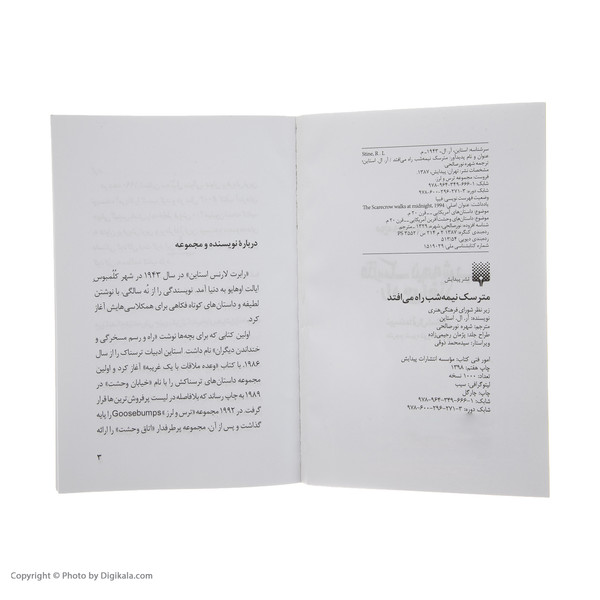 سرشناسه: استاین، آر. ال.، ۱۹۴۳-م. Stine, R. L
عنوان و نام پدیدآور: مترسک نیمه‌شب راه می‌افتد / آر. ال. استاین؛
ترجمه شهره نورصالحی.
مشخصات نشر: تهران: پیدایش، ۱۳۸۷
فروست: مجموعه ترس و لرز.
شابک: ۱-۶۶۶-۳۴۹-۹۶۴-۹۷۸
شابک دوره: ۳-۲۷۱-۲۹۶-۶۰۰-۹۷۸
وضعیت فهرست نویسی: فیپا
یادداشت: عنوان اصلی: The Scarecrow walks at midnight, 1994
موضوع: داستان‌های آمریکایی -- قرن ۲۰ م.
موضوع: داستان‌های وحشت‌آفرین آمریکایی -- قرن ۲۰ م.
شناسه افزوده: نورصالحی، شهره، ۱۳۲۹ -، مترجم.
رده‌بندی کنگره: ۱۳۸۷ ۴ م ۲۱۴ س / PS ۳۵۵۲
رده‌بندی دیویی: ۸۱۳/۵۴
شماره کتابشناسی ملی: ۱۵۱۹۰۲۹
نشر پیدایش
مترسک نیمه‌شب راه می‌افتد
زیر نظر شورای فرهنگی‌هنری
نویسنده: آر. ال. استاین
مترجم: شهره نورصالحی
طراح جلد: پژمان رحیمی‌زاده
ویراستار: سیدمحمد ذوقی
امور فنی کتاب: مؤسسه انتشارات پیدایش
چاپ هفتم: ۱۳۹۸
تعداد: ۱۰۰۰ نسخه
لیتوگرافی: سیب
چاپ: چارگل
شابک: ۱-۶۶۶-۳۴۹-۹۶۴-۹۷۸
شابک دوره: ۳-۲۷۱-۲۹۶-۶۰۰-۹۷۸
دربارهٔ نویسنده و مجموعه
«رابرت لارنس استاین» در سال ۱۹۴۳ در شهر کُلُمبوس
ایالت اوهایو به دنیا آمد. نویسندگی را از نُه سالگی، با نوشتن
لطیفه و داستان‌های کوتاه فکاهی برای همکلاسی‌هایش آغاز
کرد.
اولین کتابی که برای بچه‌ها نوشت «راه و رسم مسخرگی و
خنداندن دیگران» نام داشت. استاین ادبیات ترسناک را از سال
۱۹۸۶، با کتاب «وعده ملاقات با یک غریبه» آغاز کرد و اولین
مجموعه داستان‌های ترسناکش را با نام «خیابان وحشت» در
۱۹۸۹ به چاپ رساند که بلافاصله در لیست پرفروش‌ترین‌ها قرار
گرفت. در ۱۹۹۲ مجموعه «ترس و لرز Goosebumps» را پایه
گذاشت و پس از آن، مجموعه پرطرفدار «اتاق وحشت» را ارائه
۳
Copyright © Photo by Digikala.com